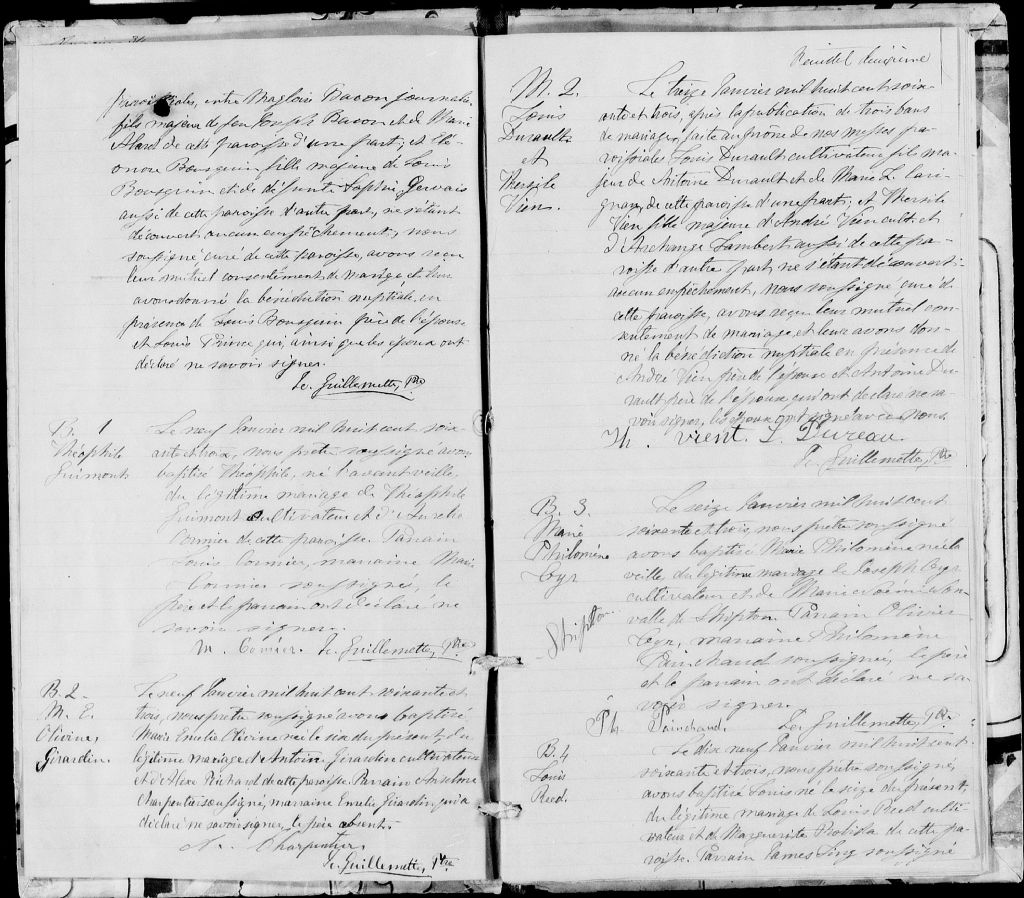 paroissiales, entre Magloire Bacon journalier
fils majeur de feu Joseph Bacon et de Marie
de cette paroisse d'une part; et Elé-
onore Bourquin fille majeure de Louis
Bourquin et de défunte Sophie Gervais
aussi de cette paroisse d'autre part, ne s'étant
découvert aucun empêchement, nous
soussigné curé de cette paroisse, avons reçu
leur mutuel consentement de mariage et leur
avons donné la bénédiction nuptiale en
présence de Louis Bourquin père de l'épouse
et Louis Prince qui, ainsi que les époux ont
déclaré ne savoir signer.
Je. Guillemette, Ptre
B. 1
Théophile
Guimont
Le neuf Janvier mil huit cent soix-
ante et trois, nous prêtre soussigné avons
baptisé Théophile, né l'avant veille
du légitime mariage de Théophile
Guimont cultivateur et d'Aurelie
Cormier de cette paroisse. Parrain
Louis Cormier, marraine Marie
Cormier soussigné, le
père et le parrain ont déclaré ne
savoir signer.
M. Cormier. Je. Guillemette, Ptre
B. 2
M. E.
Olivine
Girardin.
Le neuf Janvier mil huit cent soixante et
trois, nous prêtre soussigné avons baptisé
Marie Emelie Olivine née le six du présent, du
légitime mariage d'Antoine Girardin cultivateur
et d' Richard de cette paroisse. Parrain Anselme
Charpentier soussigné, marraine Emelie Girardin, qui a
déclaré ne savoir signer, le père absent.
Charpentier
Je. Guillemette, Ptre
Feuillet deuxième
M. 2.
Louis
Durault
et
Thersile
Vien.
Le treize Janvier mil huit cent soix-
ante et trois, après la publication de trois bans
de mariage, faite au prône de nos messes pa-
roissiales, Louis Durault cultivateur fils ma-
jeur de Antoine Durault et de Marie L. Cari-
gnan, de cette paroisse d'une part; et Thersile
Vien fille majeure d'André Vien cult. et
d'Archange Lambert aussi de cette pa-
roisse d'autre part, ne s'étant découvert
aucun empêchement, nous soussigné curé de
cette paroisse, avons reçu leur mutuel con-
sentement de mariage et leur avons don-
né la bénédiction nuptiale en présence de
André Vien père de l'épouse et Antoine Du-
rault père de l'époux qui ont déclaré ne sa-
voir signer, les époux ont signé avec nous.
Th. vient. L. Dureau.
Je. Guillemette, Ptre
B. 3.
Marie
Philomène
Cyr
Shipton
Le seize Janvier mil huit cent
soixante et trois, nous prêtre soussigné
avons baptisé Marie Philomène née la
veille du légitime mariage de Joseph Cyr
cultivateur et de Marie Noémie Bon-
valle de Shipton. Parrain Olivier
Cyr, marraine Philomène
Painchaud soussignée, le père
et le parrain ont déclaré ne sa-
voir signer.
Ph. Painchaud. Je. Guillemette, Ptre
B. 4
Louis
Reed.
Le dix neuf Janvier mil huit cent
soixante et trois, nous prêtre soussigné,
avons baptisé Louis né le seize du présent
du légitime mariage de Louis Reed culti-
vateur et de Marguerite de cette pa-
roisse. Parrain James King soussigné